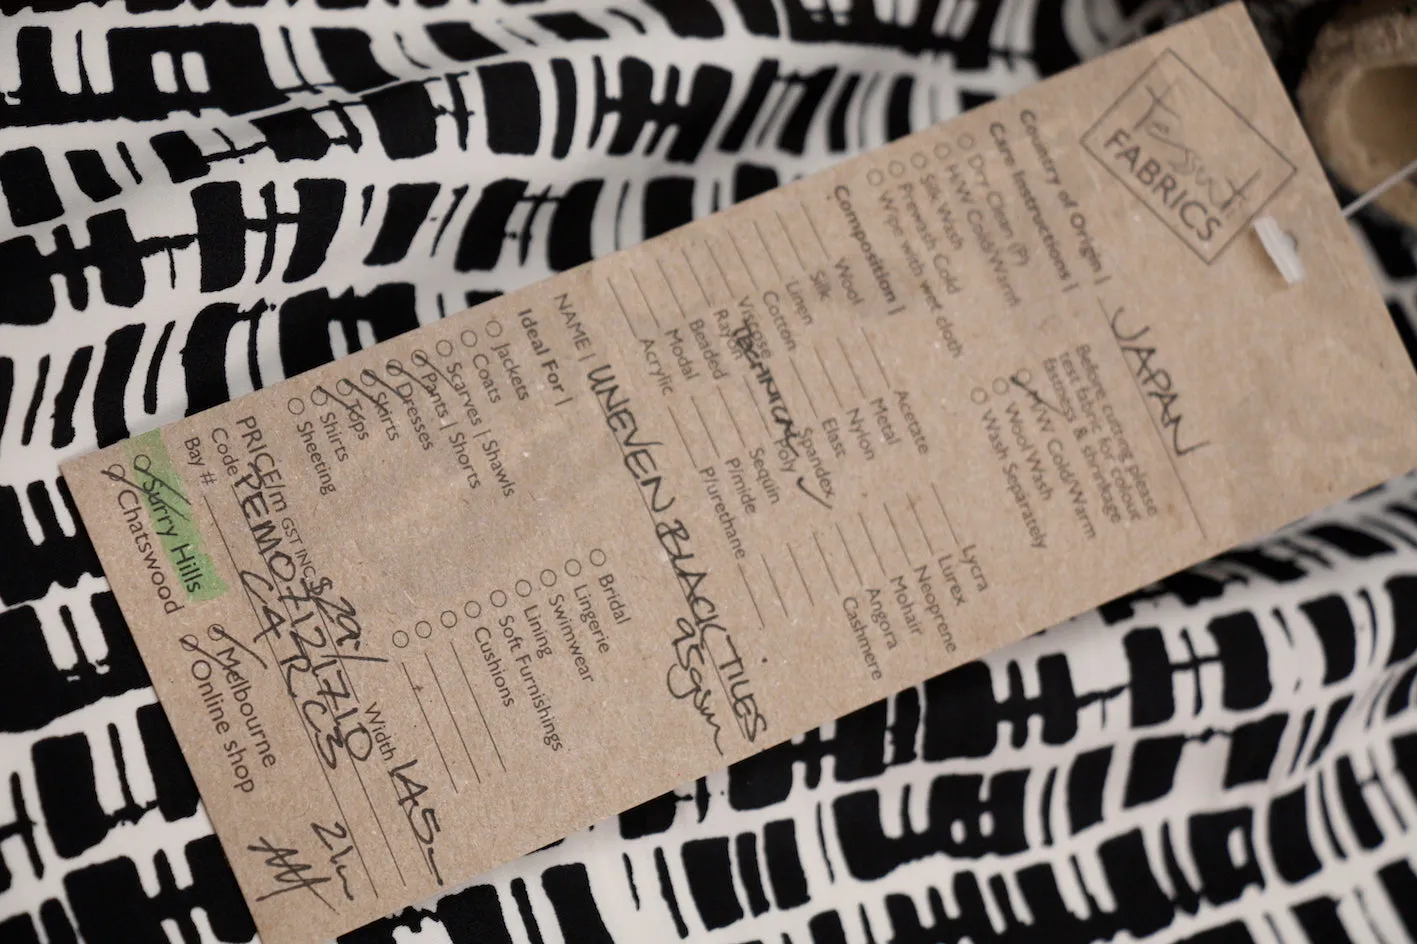 tessuti
FABRICS
Country of Origin | JAPAN
Care Instructions |
Dry Clean (P)
H/W Cold/Warm
Silk Wash
Prewash Cold
Wipe with wet cloth
Before cutting please
test fabric for colour
fastness & shrinkage
H/W Cold/Warm
Wool/Wash
Wash Separately
Composition |
Wool
Silk
Linen
Cotton
Viscose
Rayon
Beaded
Modal
Acrylic
TECHNICAL
Acetate
Metal
Nylon
Elast
Spandex
Poly
Sequin
P/imide
P/urethane
Lycra
Lurex
Neoprene
Mohair
Angora
Cashmere
NAME | UNEVEN BLACK TILES
95gsm
Ideal For |
Jackets
Coats
Scarves | Shawls
Pants | Shorts
Dresses
Skirts
Tops
Shirts
Sheeting
Bridal
Lingerie
Swimwear
Lining
Soft Furnishings
Cushions
PRICE/m GST INC $29/ Width 145
Code PEMO71217510
Bay # CA RC3
Surry Hills
Chatswood
Melbourne
Online shop